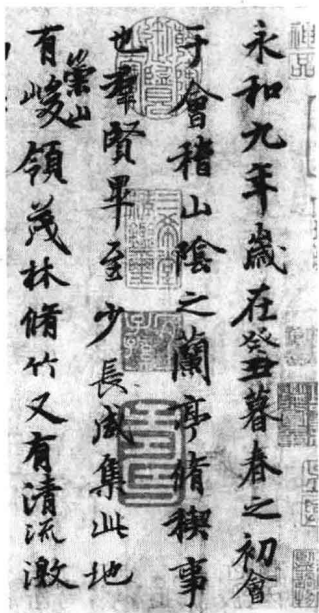 永和九年歲在癸丑暮春之初會
于會稽山陰之蘭亭脩稧事
也羣賢畢至少長咸集此地
有崇山峻領茂林脩竹又有清流激
神品